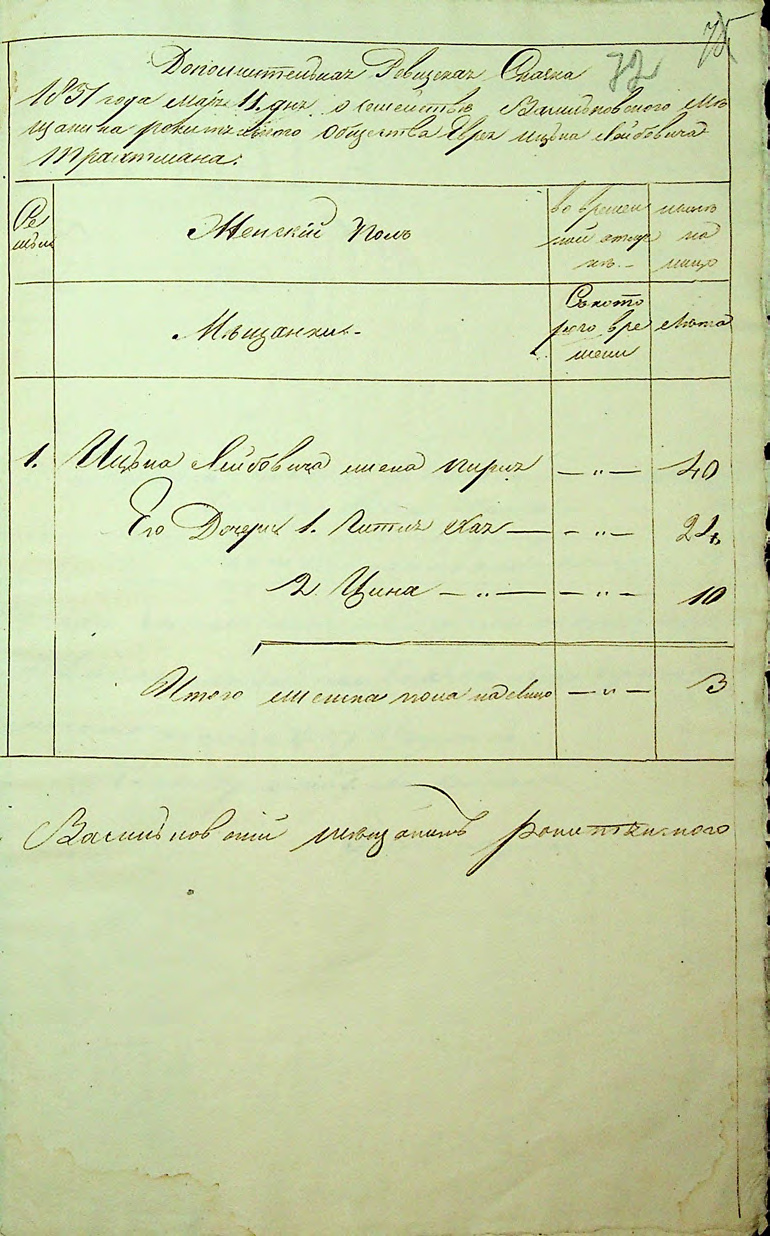 75
72
Дополнительная Ревизская Сказка
1837 года Маія 11 дня о семействѣ Васильковского мѣ
щанина рокитянского общества Евреи Ицька Лейбовича
Трахтмана.
Се
мьи
Женскій полъ
во времен
ной отлуч
кѣ
нынѣ
на
лицо
Мѣщанки
Съ кото
рого вре
мени
Лѣта
1. Ицька Лейбовича жена — " — 40
Его Дочери 1. — — " — 24
2. Цина — " — — " — 10
Итого женска пола на лицо — " — 3
Васильковский мѣщанинъ рокитянского